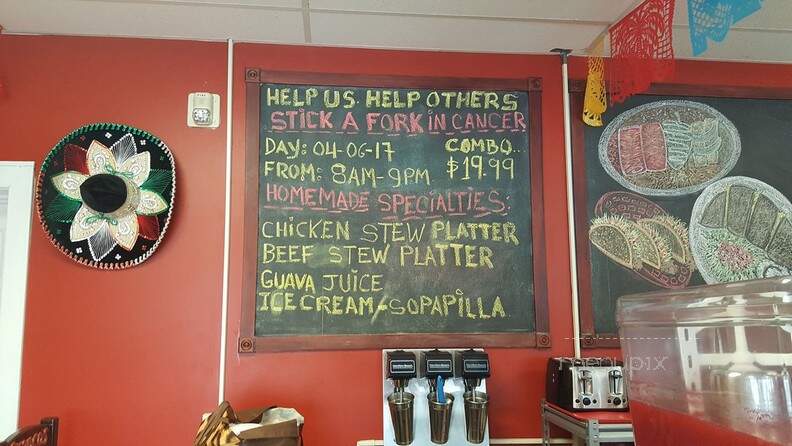 HELP US HELP OTHERS
STICK A FORK IN CANCER
DAY: 04-06-17 COMBO..
FROM: 8AM-9PM. $19.99
HOMEMADE SPECIALTIES:
CHICKEN STEW PLATTER
BEEF STEW PLATTER
GUAVA JUICE
ICE CREAM-SOPAPILLA
menupix